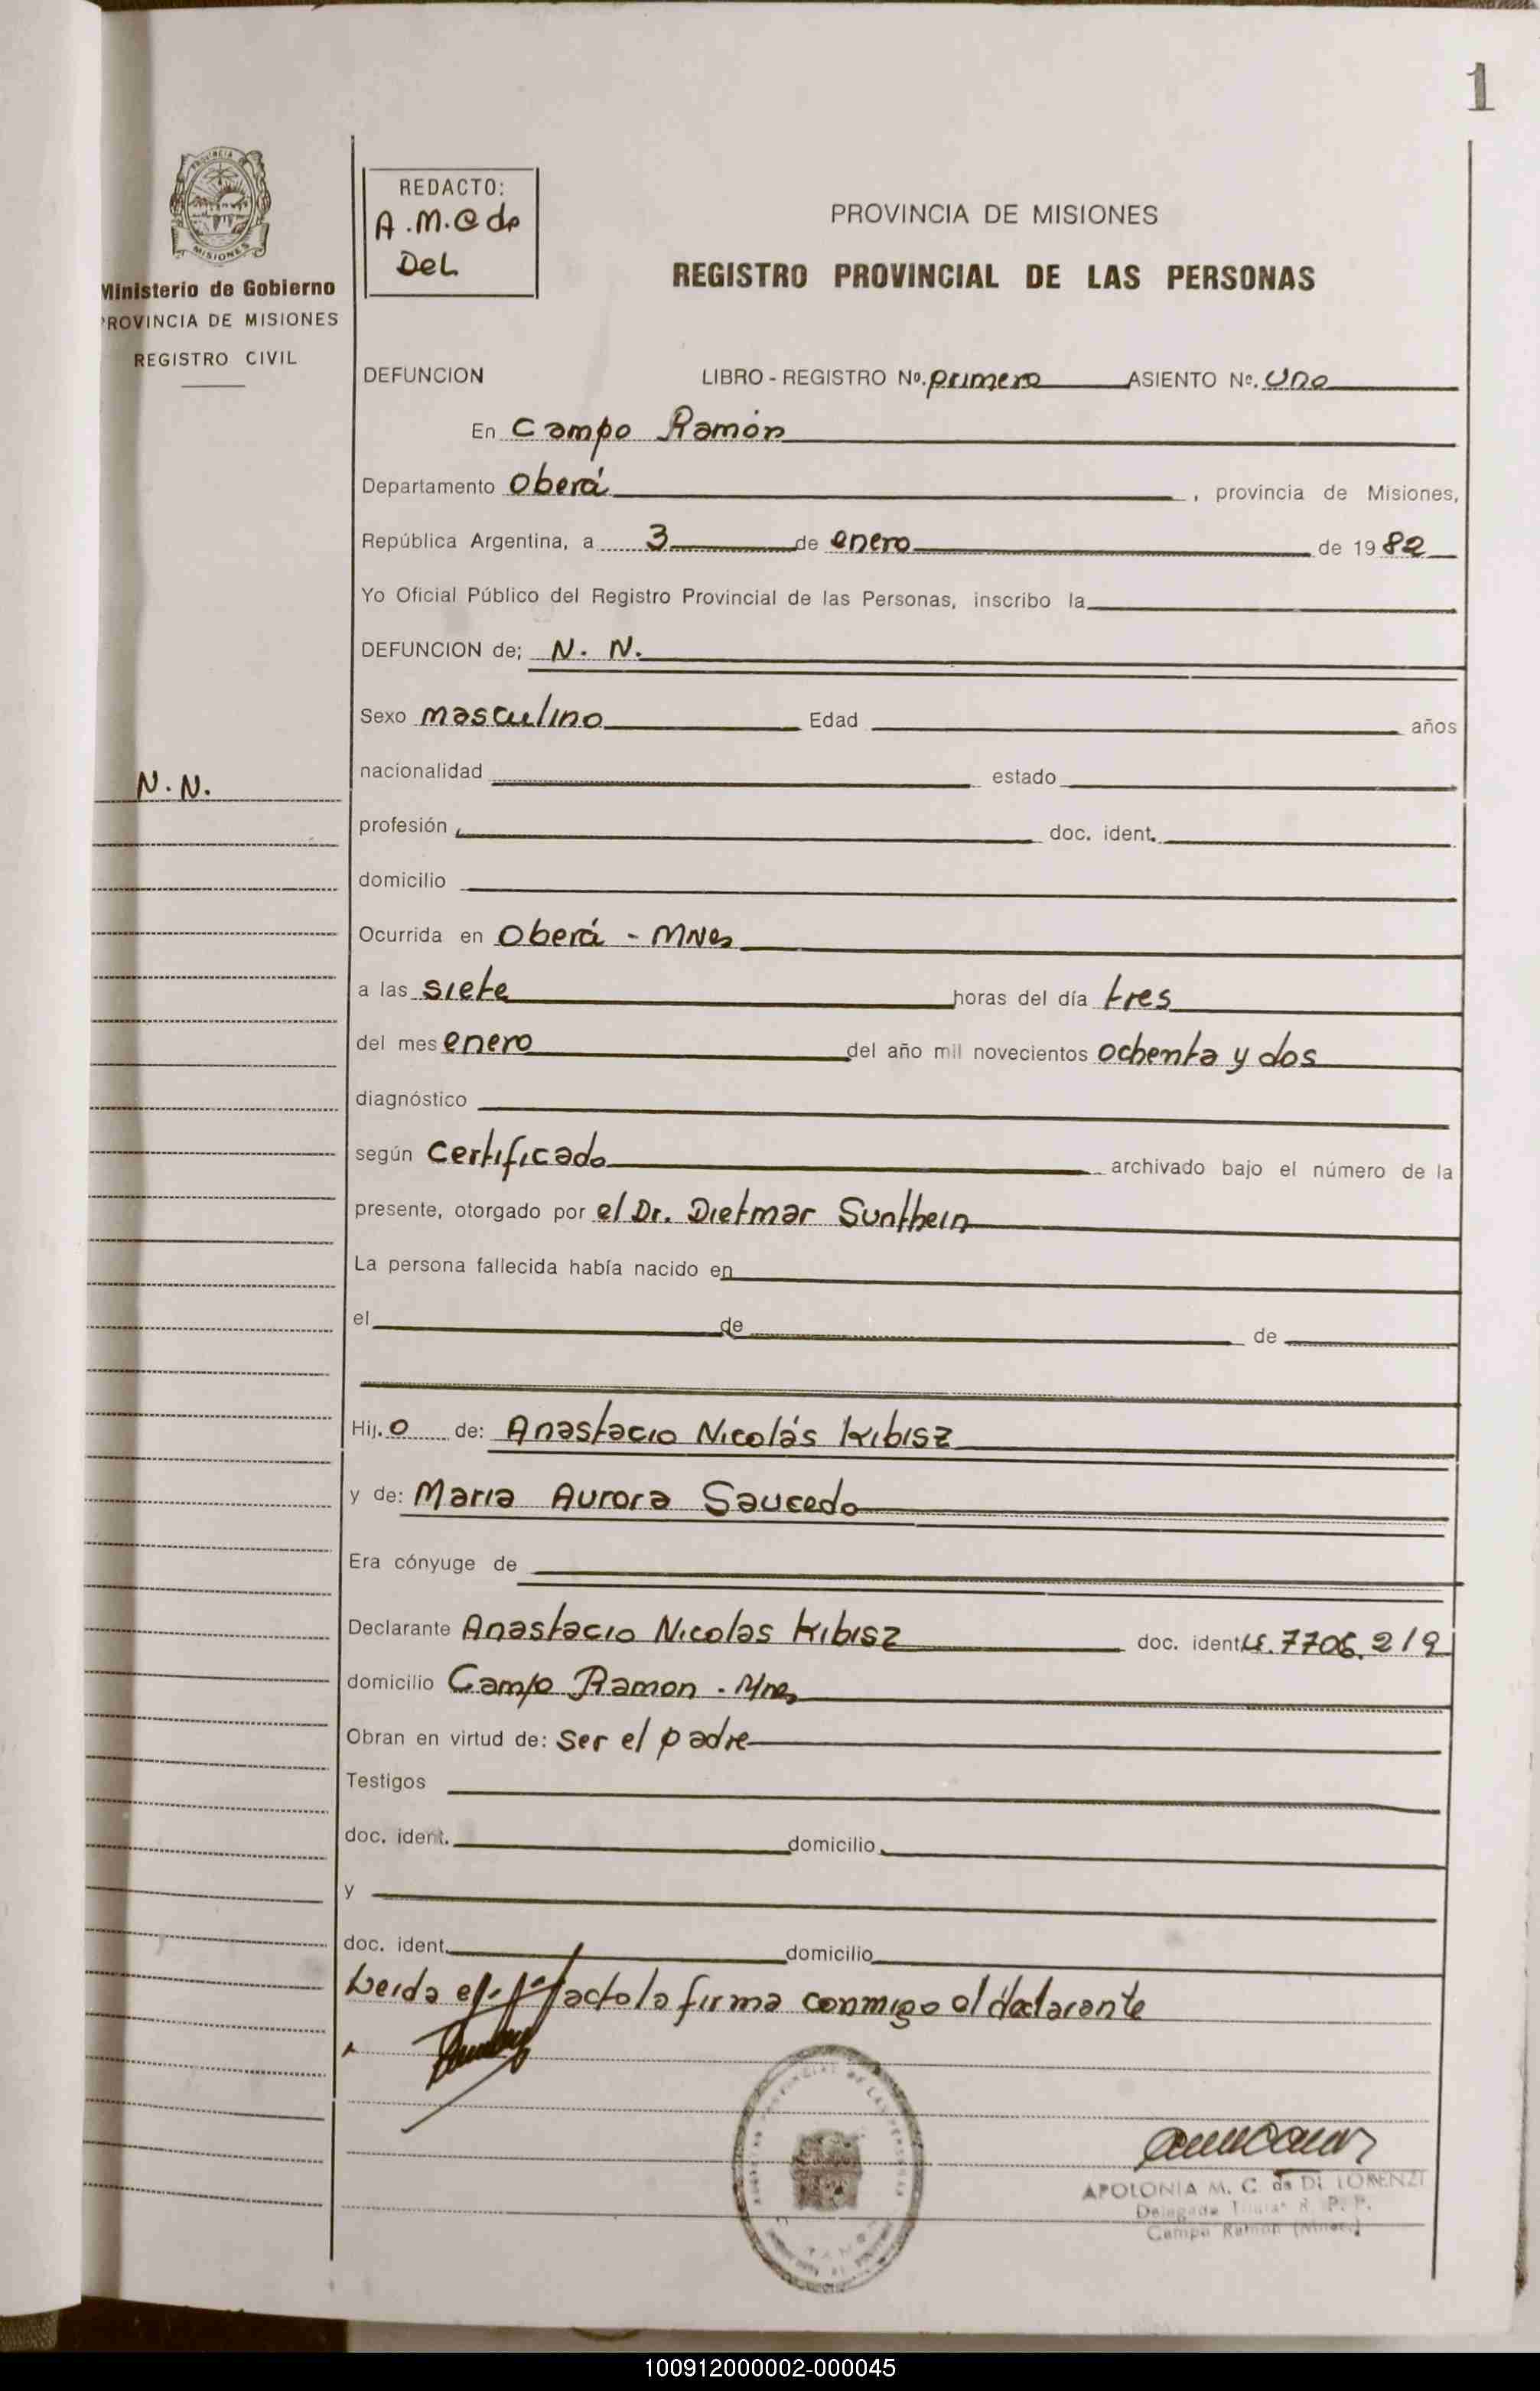 1
PROVINCIA DE
MISIONES
Ministerio de Gobierno
PROVINCIA DE MISIONES
REGISTRO CIVIL
REDACTO:
A.M.C de
DeL
PROVINCIA DE MISIONES
REGISTRO PROVINCIAL DE LAS PERSONAS
DEFUNCION LIBRO - REGISTRO Nº. primero ASIENTO Nº. uno
En Campo Ramón
Departamento Oberá , provincia de Misiones,
República Argentina, a 3 de enero de 1982
Yo Oficial Público del Registro Provincial de las Personas, inscribo la
DEFUNCION de; N. N.
Sexo masculino Edad años
N. N.
nacionalidad estado
profesión doc. ident.
domicilio
Ocurrida en Oberá - Mnes
a las siete horas del día tres
del mes enero del año mil novecientos ochenta y dos
diagnóstico
según certificado archivado bajo el número de la
presente, otorgado por el Dr. Dietmar Sunthein
La persona fallecida había nacido en
el de de
Hij. o de: Anastacio Nicolás Kibisz
y de: Maria Aurora Saucedo
Era cónyuge de
Declarante Anastacio Nicolas Kibisz doc. ident. LE. 7706.219
domicilio Campo Ramon - Mnes
Obran en virtud de: ser el padre
Testigos
doc. ident. domicilio
y
doc. ident. domicilio
Leida el acto la firma conmigo el declarante
APOLONIA M. C. de DI LORENZI
Delegada Titular R. P. P.
Campo Ramón (Mnes.)
100912000002-000045